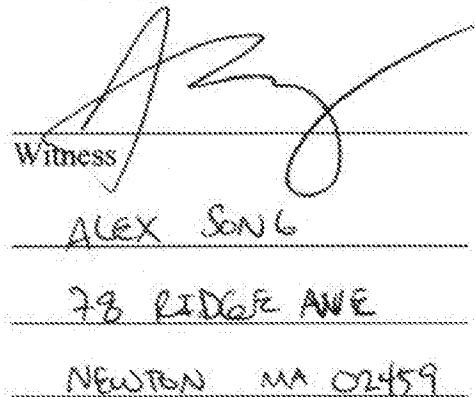 Witness
ALEX SONG
78 RIDGE AVE
NEWTON MA 02459